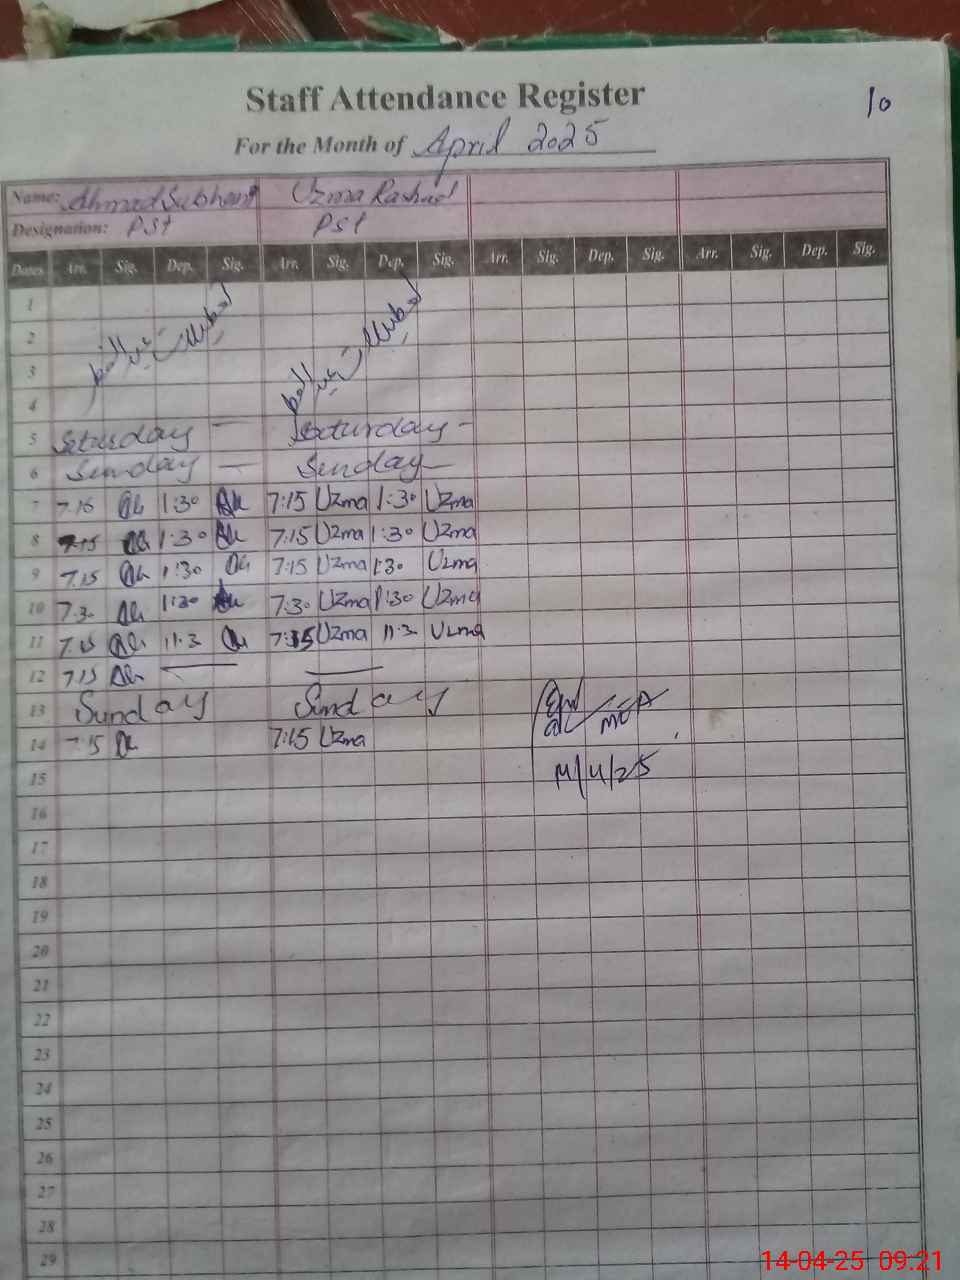 Staff Attendance Register
10
For the Month of April 2025
Name: Ahmad Subhani Uzma Rashid
Designation: PST PST
Dates Arr. Sig. Dep. Sig. Arr. Sig. Dep. Sig. Arr. Sig. Dep. Sig. Arr. Sig. Dep. Sig.
1
2
3
4
5 Saturday — Saturday -
6 Sunday — Sunday —
7 7.15 1:30 7:15 Uzma 1:30 Uzma
8 7.15 1:30 7:15 Uzma 1:30 Uzma
9 7.15 1:30 7:15 Uzma 1:30 Uzma
10 7.30 1:30 7:30 Uzma 1:30 Uzma
11 7.15 11.3 7:15 Uzma 11.3 Uzma
12 7.15 — —
13 Sunday Sunday
14 7.15 7:15 Uzma
MEA
15 14/4/25
16
17
18
19
20
21
22
23
24
25
26
27
28
29
14-04-25 09:21